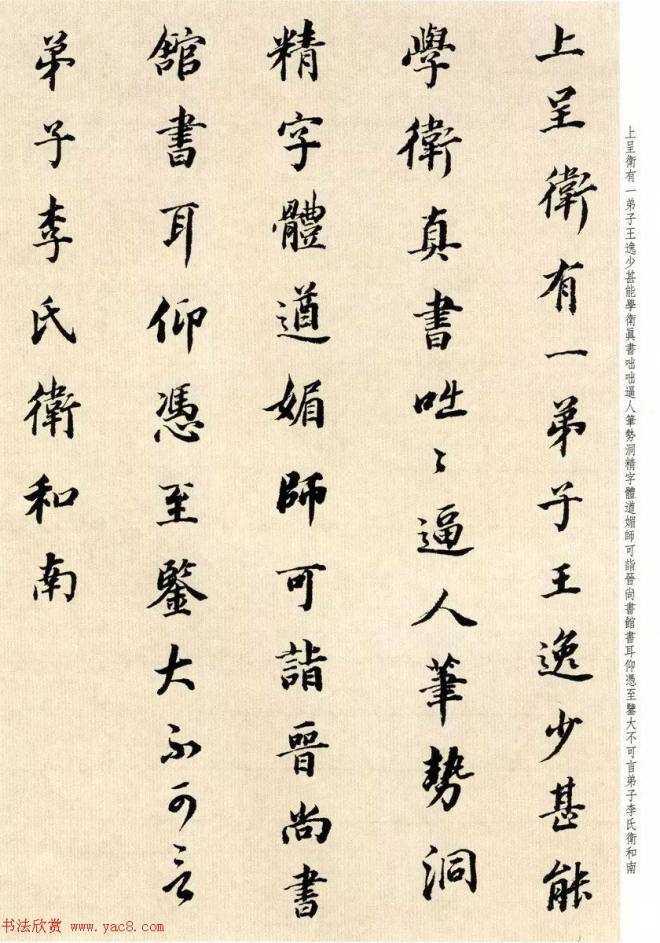 上呈衛有一弟子王逸少甚能
學衛真書咄〻逼人筆勢洞
精字體遒媚師可詣晉尚書
館書耳仰憑至鑒大不可言
弟子李氏衛和南
上呈衛有一弟子王逸少甚能學衛眞書咄咄逼人筆勢洞精字體遒媚師可詣晉尚書館書耳仰憑至鑒大不可言弟子李氏衛和南
书法欣赏 www.yac8.com